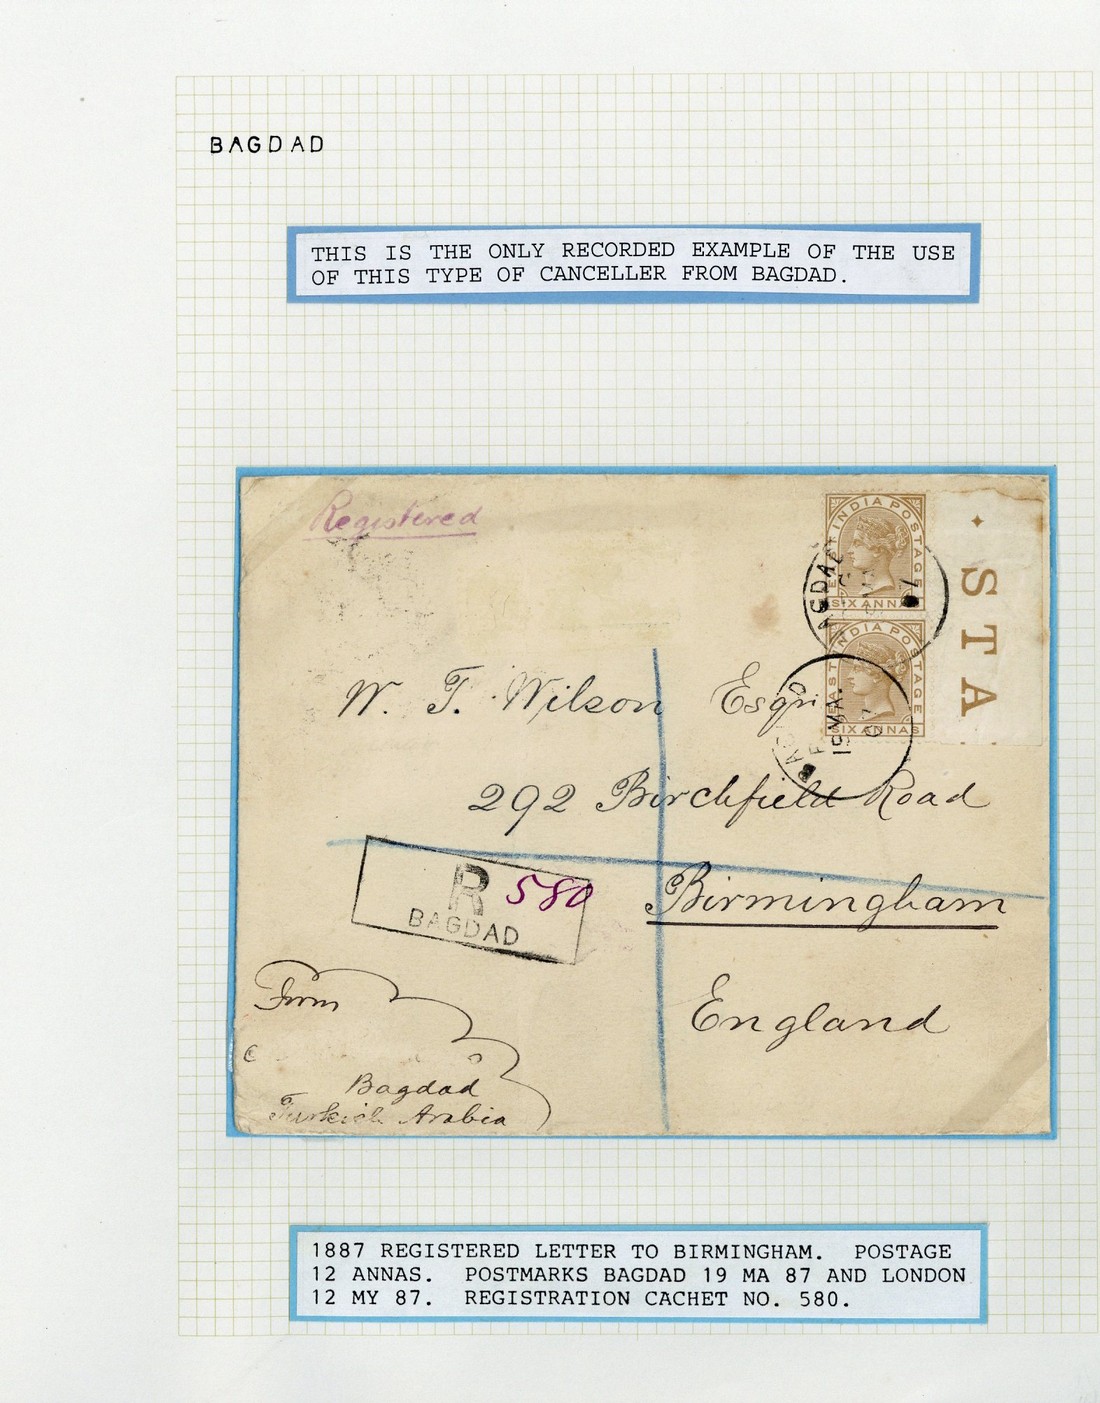 BAGDAD
THIS IS THE ONLY RECORDED EXAMPLE OF THE USE
OF THIS TYPE OF CANCELLER FROM BAGDAD.
Registered
EAST INDIA POSTAGE
SIX ANNAS
STA
EAST INDIA POSTAGE
SIX ANNAS
19 MA.
W. T. Wilson Esqr.
292 Birchfield Road
Birmingham
England
R 580
BAGDAD
From
Bagdad
Turkish Arabia
1887 REGISTERED LETTER TO BIRMINGHAM. POSTAGE
12 ANNAS. POSTMARKS BAGDAD 19 MA 87 AND LONDON
12 MY 87. REGISTRATION CACHET NO. 580.